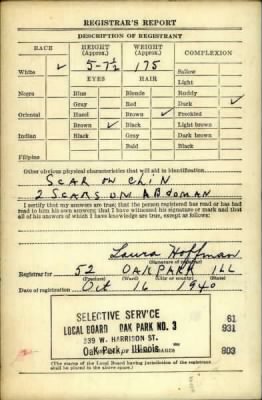 REGISTRAR'S REPORT
DESCRIPTION OF REGISTRANT
RACE HEIGHT (Approx.) WEIGHT (Approx.) COMPLEXION
White ✓ 5-7½ 175 Sallow
EYES HAIR Light
Negro Blue Blonde Ruddy
Gray Red Dark ✓
Oriental Hazel Brown ✓ Freckled
Brown ✓ Black Light brown
Indian Black Gray Dark brown
Bald Black
Filipino
Other obvious physical characteristics that will aid in identification
SCAR ON CHIN
2 SCARS ON ABDOMAN
I certify that my answers are true; that the person registered has read or has had read to him his own answers; that I have witnessed his signature or mark and that all of his answers of which I have knowledge are true, except as follows:
Laura Hoffman
(Signature of registrar)
Registrar for 52 OAK PARK ILL
(Precinct) (Ward) (City or county) (State)
Date of registration Oct 16 1940
SELECTIVE SERVICE 61
LOCAL BOARD OAK PARK NO. 3 931
W. HARRISON St.
Oak Park, Illinois 803
(The stamp of the Local Board having jurisdiction of the registrant shall be placed in the above space.)